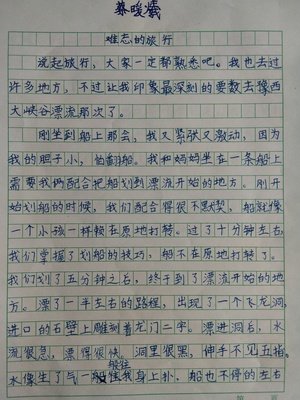 蔡暖曦
难忘的旅行
说起旅行，大家一定都熟悉吧。我也去过
许多地方，不过让我印象最深刻的要数去豫西
大峡谷漂流那次了。
刚坐到船上那会，我又紧张又激动，因为
我的胆子小，怕翻船。我和妈妈坐在一条船上
需要我俩配合把船划到漂流开始的地方。刚开
始划船的时候，我们配合得很不默契，船就像
一个小孩一样赖在原地打转。过了十分钟左右，
我们掌握了划船的技巧，船不在原地打转了。
我们划了五分钟之后，终于到了漂流开始的地
方。漂了一半左右的路程，出现了一个飞龙洞，
进口的石壁上雕刻着龙门二字。漂进洞后，水
流很急，漂得很快。洞里很黑，伸手不见五指。
水像生了气一般往我身上扑，船也不停的左右